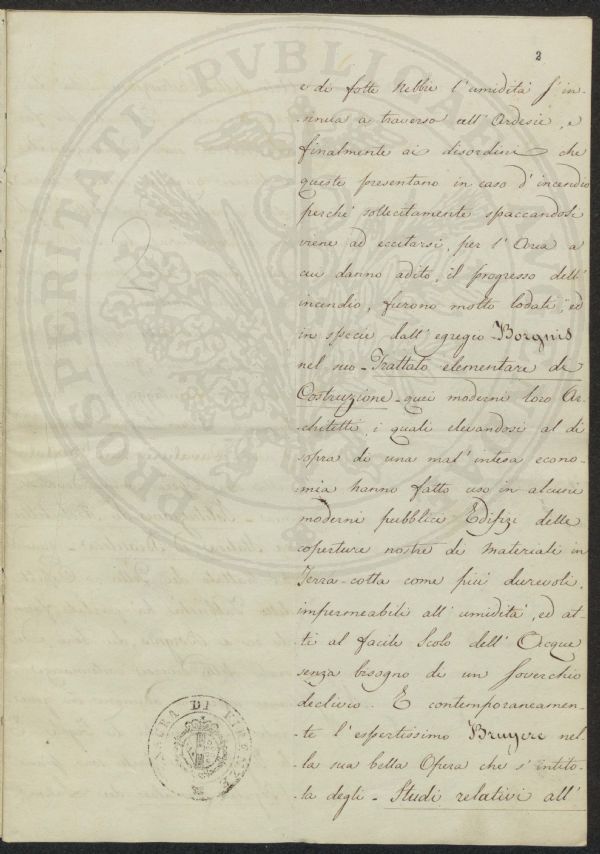 2
e di folte Nebbie l'umidità s'in-
-sinua a traverso all'Ardesie, e
finalmente ai disordini che
queste presentano in caso d'incendio
perchè sollecitamente spaccandosi
viene ad eccitarsi, per l'Aria a
cui danno adito, il progresso dell'
incendio, furono molto lodati, ed
in specie dall'egregio Borgnis
nel suo - Trattato elementare di
Costruzione - quei moderni loro Ar-
-chitetti, i quali elevandosi al di
sopra di una mal'intesa econo-
-mia hanno fatto uso in alcuni
moderni pubblici Edifizi delle
coperture nostre di Materiali in
Terra-cotta come più durevoli,
impermeabili all'umidità, ed at-
-ti al facile Scolo dell'Acque
senza bisogno di un soverchio
declivio. E contemporaneamen-
-te l'espertissimo Bruyere nel-
-la sua bella Opera che s'intito-
-la degli - Studi relativi all'
PROSPERITATI PVBLICAE
DI FIRENZE